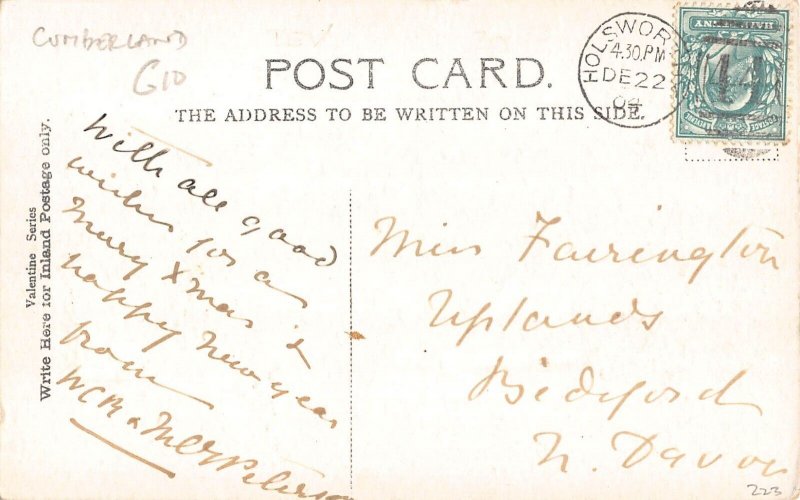 CUMBERLAND
G10
POST CARD.
THE ADDRESS TO BE WRITTEN ON THIS SIDE.
HOLSWOR
4.30.PM
DE 22
04
Valentine Series
Write Here for Inland Postage only.
With all good
wishes for a
Merry Xmas &
happy New year
from
Miss Fairington
Uplands
Bideford
N. Devon
223